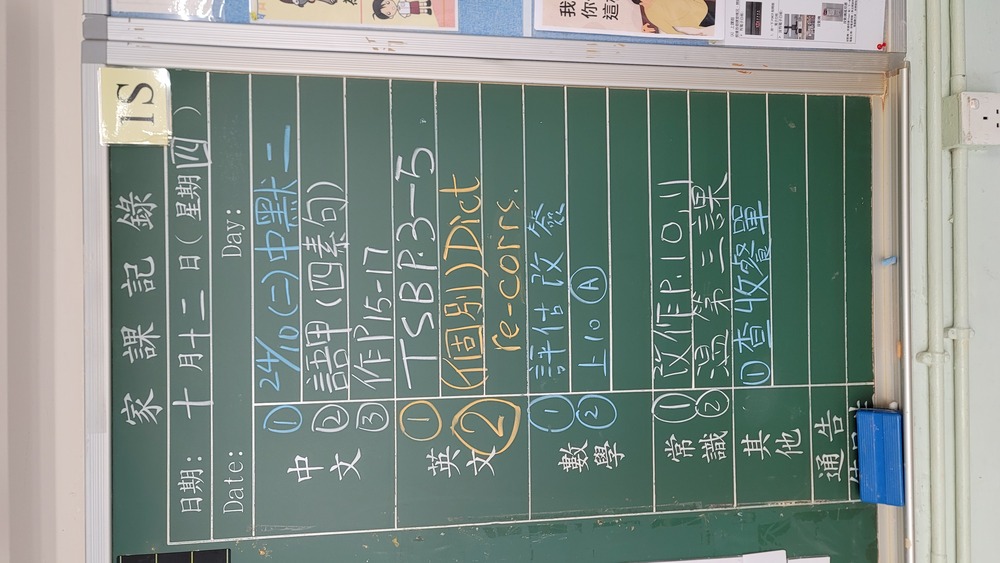 我
你
這
1S
家課記錄
日期： 十月十二日（星期四）
Date: Day:
中文
① 24/10(二)中默二
② 語甲(四素句)
③ 作P.15-17
英文
① TSBP.3-5
② (個別)Dict
re-corrs.
數學
① 評估改簽
② 上10 Ⓐ
常識
① 改作P.10,11
② 溫第三課
其他
① 查收餐單
通告